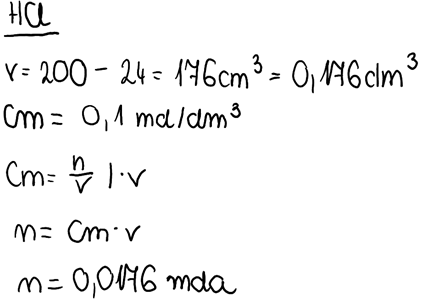 HCl
v = 200 - 24 = 176cm³ = 0,176dm³
Cm = 0,1 mol/dm³
Cm = n/v | · v
n = Cm · v
n = 0,0176 mola